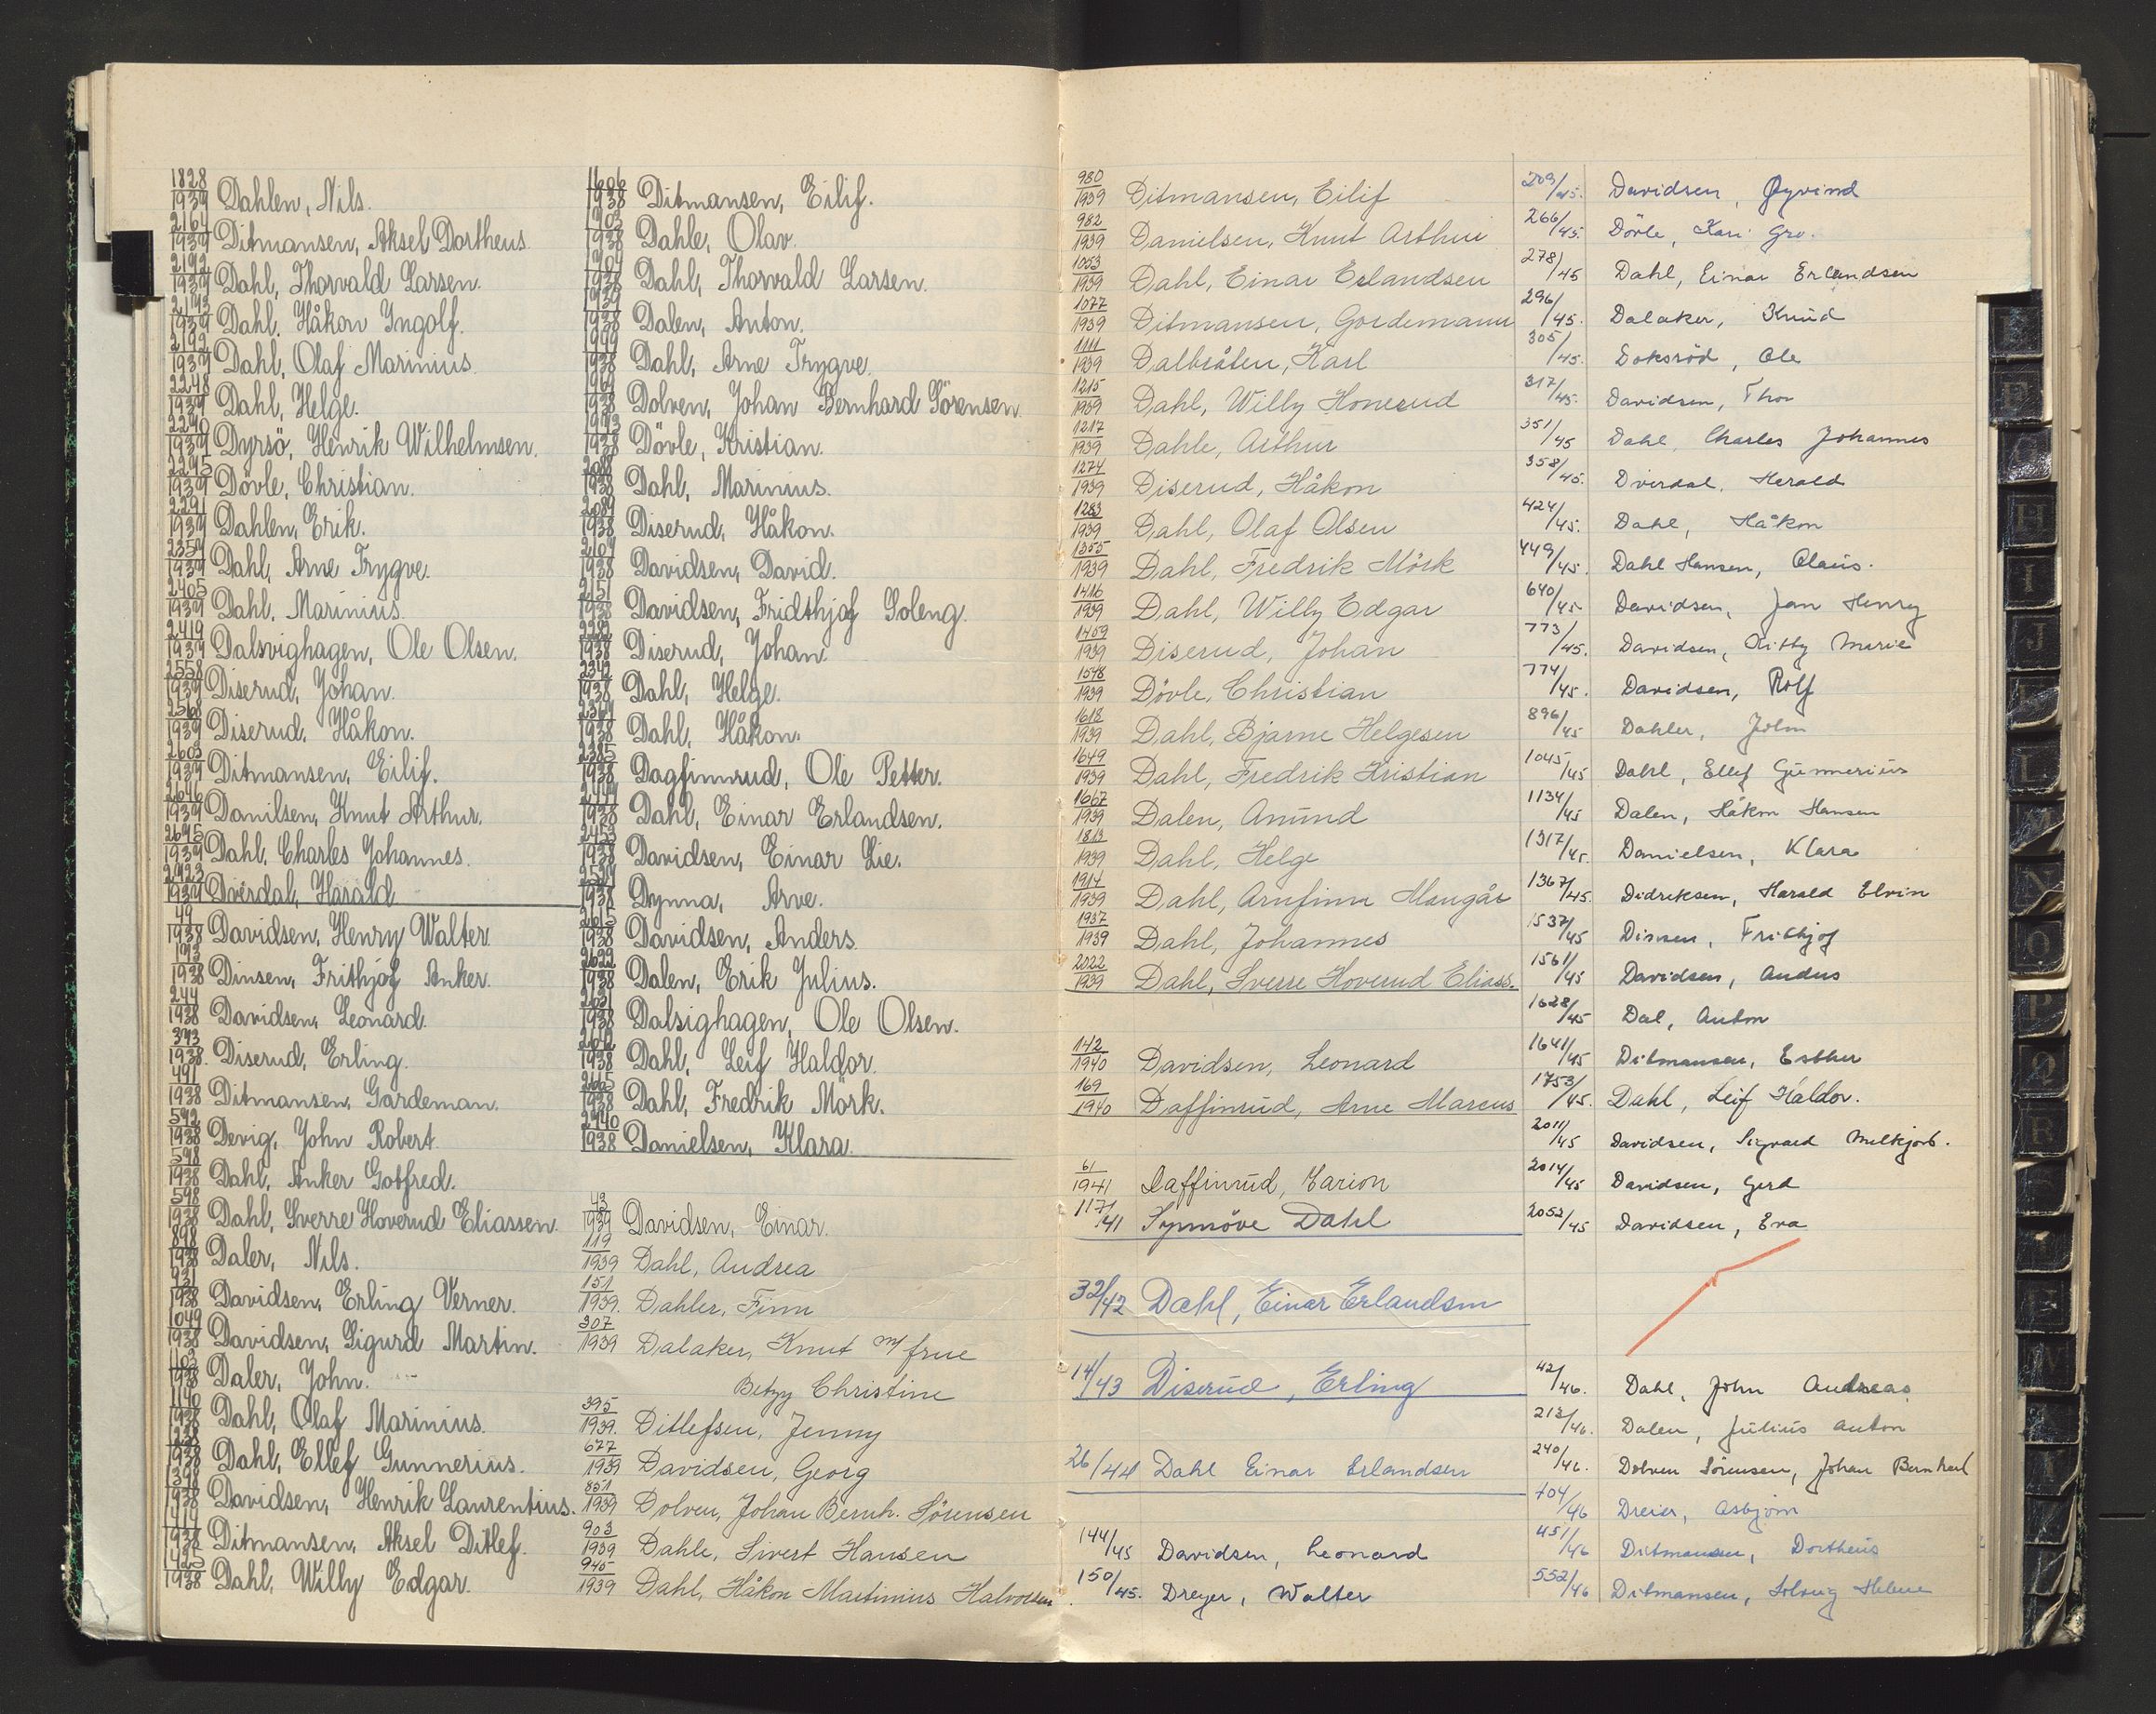 1828/1937 Dahlen, Nils.
2161/1937 Ditmansen, Aksel Dortheus
2192/1937 Dahl, Thorvald Larsen.
2193/1937 Dahl, Håkon Ingolf.
2192/1937 Dahl, Olaf Marinius.
2248/1937 Dahl, Helge.
2290/1937 Dyrsö, Henrik Wilhelmsen.
2295/1937 Dövle, Christian.
2291/1937 Dahlen, Erik.
2357/1937 Dahl, Arne Trygve.
2405/1937 Dahl, Marinius.
2419/1937 Dalsvighagen, Ole Olsen.
2558/1937 Diserud, Johan.
2568/1937 Diserud, Håkon.
2603/1937 Ditmansen, Eilif.
2646/1937 Danilsen, Knut Arthur.
2695/1937 Dahl, Charles Johannes.
2923/1937 Dverdal, Harald
49/1938 Davidsen, Henry Walter.
193/1938 Dinsen, Frithjof Anker.
244/1938 Davidsen, Leonard.
393/1938 Diserud, Erling.
491/1938 Ditmansen, Gardeman.
592/1938 Devig, John Robert.
598/1938 Dahl, Anker Gotfred.
598/1938 Dahl, Sverre Hoverud Eliassen.
898/1938 Daler, Nils.
931/1938 Davidsen, Erling Verner.
1049/1938 Davidsen, Sigurd Martin.
1103/1938 Daler, John.
1140/1938 Dahl, Olaf Marinius.
1938 Dahl, Ellef Gunnerius.
1398/1938 Davidsen, Henrik Laurentius.
1419/1938 Ditmansen, Aksel Ditlef.
1938 Dahl, Willy Edgar.
1606/1938 Ditmansen, Eilif.
1703/1938 Dahle, Olav.
1938 Dahl, Thorvald Larsen.
1938 Dalen, Anton.
1938 Dahl, Arne Trygve.
1969/1938 Dolven, Johan Bernhard Sörensen
1938 Dövle, Kristian.
2088/1938 Dahl, Marinius.
2089/1938 Diserud, Håkon.
2109/1938 Davidsen, David.
2151/1938 Davidsen, Fridthjof Soleng.
2282/1938 Diserud, Johan.
2342/1938 Dahl, Helge.
2364/1938 Dahl, Håkon.
2385/1938 Dagfinnrud, Ole Petter.
2444/1938 Dahl, Einar Erlandsen.
2453/1938 Davidsen, Einar Lie.
1938 Dynna, Arve.
2615/1938 Davidsen, Anders.
2622/1938 Dalen, Erik Julius.
2631/1938 Dalsighagen, Ole Olsen.
1938 Dahl, Leif Haldor.
2665/1938 Dahl, Fredrik Mörk.
2940/1938 Danielsen, Klara.
43/1939 Davidsen, Einar.
119/1939 Dahl, Andrea
151/1939. Dahler, Finn
307/1939 Dalaker, Knut m/ frue
Betzy Christine
395/1939. Ditlefsen, Jenny
677/1939 Davidsen, Georg
851/1939 Dolven, Johan Bernh. Sörensen
903/1939 Dahle, Sivert Hansen
945/1939 Dahl, Håkon Martinius Halvorsen
980/1939 Ditmansen, Eilif
982/1939 Danielsen, Knut Arthur
1053/1939 Dahl, Einar Erlandsen
1077/1939 Ditmansen, Gordemann
1111/1939 Dalbråten, Karl
1215/1939 Dahl, Willy Honerud
1217/1939 Dahle, Arthur
1274/1939 Diserud, Håkon
1283/1939 Dahl, Olaf Olsen
1355/1939 Dahl, Fredrik Mörk
1416/1939 Dahl, Willy Edgar
1459/1939 Diserud, Johan
1548/1939 Dövle, Christian
1618/1939 Dahl, Bjarne Helgesen
1649/1939 Dahl, Fredrik Kristian
1667/1939 Dalen, Amund
1813/1939 Dahl, Helge
1914/1939 Dahl, Arnfinn Haugår
1937/1939 Dahl, Johannes
2022/1939 Dahl, Sverre Hoverud Eliass.
142/1940 Davidsen, Leonard
169/1940 Daffinrud, Arne Marcus
61/1941 Daffinrud, Karion
117/41 Synnöve Dahl
32/42 Dahl, Einar Erlandsen
14/43 Diserud, Erling
26/44 Dahl Einar Erlandsen
144/45 Davidsen, Leonard
150/45. Dreyer, Walter
209/45. Davidsen, Øyvind
266/45. Dövle, Kari Gro.
278/45 Dahl, Einar Erlandsen
296/45. Dalaker, Knud
305/45. Doksröd, Ole
317/45. Davidsen, Thor
351/45 Dahl, Charles Johannes
358/45. Dverdal, Herald
424/45. Dahl, Håkon
449/45. Dahl Hansen, Claus.
640/45 Davidsen, Jan Henry
773/45. Davidsen, Kitty Marie
774/45. Davidsen, Rolf
896/45 Dahler, John
1045/45 Dahl, Ellef Gunnerius
1134/45 Dalen, Håkon Hansen
1317/45. Danielsen, Klara
1367/45. Didriksen, Harald Elvin
1537/45 Dinsen, Frithjof
1561/45 Davidsen, Anders
1628/45 Dal, Anton
1641/45 Ditmansen, Esther
1753/45. Dahl, Leif Haldor.
2011/45 Davidsen, Sigvard Melkjorb.
2014/45 Davidsen, Gerd
2052/45 Davidsen, Eva
42/46. Dahl, John Andreas
213/46. Dalen, Julius Anton
240/46. Dolven Sörensen, Johan Bernhard
404/46 Dreier, Asbjörn
451/46 Ditmansen, Dortheus
552/46 Ditmansen, Solveig Helene
E
H
I
J
L
M
N
O
P
Q
R